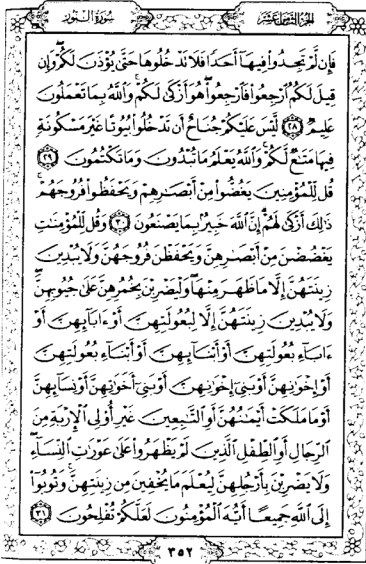 الجزء الثامن عشر
سورة النور
فَإِن لَّمْ تَجِدُوا۟ فِيهَآ أَحَدًا فَلَا تَدْخُلُوهَا حَتَّىٰ يُؤْذَنَ لَكُمْ وَإِن
قِيلَ لَكُمُ ٱرْجِعُوا۟ فَٱرْجِعُوا۟ هُوَ أَزْكَىٰ لَكُمْ وَٱللَّهُ بِمَا تَعْمَلُونَ
عَلِيمٌ ٢٨ لَّيْسَ عَلَيْكُمْ جُنَاحٌ أَن تَدْخُلُوا۟ بُيُوتًا غَيْرَ مَسْكُونَةٍ
فِيهَا مَتَٰعٌ لَّكُمْ وَٱللَّهُ يَعْلَمُ مَا تُبْدُونَ وَمَا تَكْتُمُونَ ٢٩
قُل لِّلْمُؤْمِنِينَ يَغُضُّوا۟ مِنْ أَبْصَٰرِهِمْ وَيَحْفَظُوا۟ فُرُوجَهُمْ
ذَٰلِكَ أَزْكَىٰ لَهُمْ إِنَّ ٱللَّهَ خَبِيرٌۢ بِمَا يَصْنَعُونَ ٣٠ وَقُل لِّلْمُؤْمِنَٰتِ
يَغْضُضْنَ مِنْ أَبْصَٰرِهِنَّ وَيَحْفَظْنَ فُرُوجَهُنَّ وَلَا يُبْدِينَ
زِينَتَهُنَّ إِلَّا مَا ظَهَرَ مِنْهَا وَلْيَضْرِبْنَ بِخُمُرِهِنَّ عَلَىٰ جُيُوبِهِنَّ
وَلَا يُبْدِينَ زِينَتَهُنَّ إِلَّا لِبُعُولَتِهِنَّ أَوْ ءَابَآئِهِنَّ أَوْ
ءَابَآءِ بُعُولَتِهِنَّ أَوْ أَبْنَآئِهِنَّ أَوْ أَبْنَآءِ بُعُولَتِهِنَّ
أَوْ إِخْوَٰنِهِنَّ أَوْ بَنِىٓ إِخْوَٰنِهِنَّ أَوْ بَنِىٓ أَخَوَٰتِهِنَّ أَوْ نِسَآئِهِنَّ
أَوْ مَا مَلَكَتْ أَيْمَٰنُهُنَّ أَوِ ٱلتَّٰبِعِينَ غَيْرِ أُو۟لِى ٱلْإِرْبَةِ مِنَ
ٱلرِّجَالِ أَوِ ٱلطِّفْلِ ٱلَّذِينَ لَمْ يَظْهَرُوا۟ عَلَىٰ عَوْرَٰتِ ٱلنِّسَآءِ
وَلَا يَضْرِبْنَ بِأَرْجُلِهِنَّ لِيُعْلَمَ مَا يُخْفِينَ مِن زِينَتِهِنَّ وَتُوبُوٓا۟
إِلَى ٱللَّهِ جَمِيعًا أَيُّهَ ٱلْمُؤْمِنُونَ لَعَلَّكُمْ تُفْلِحُونَ ٣١
٣٥٢